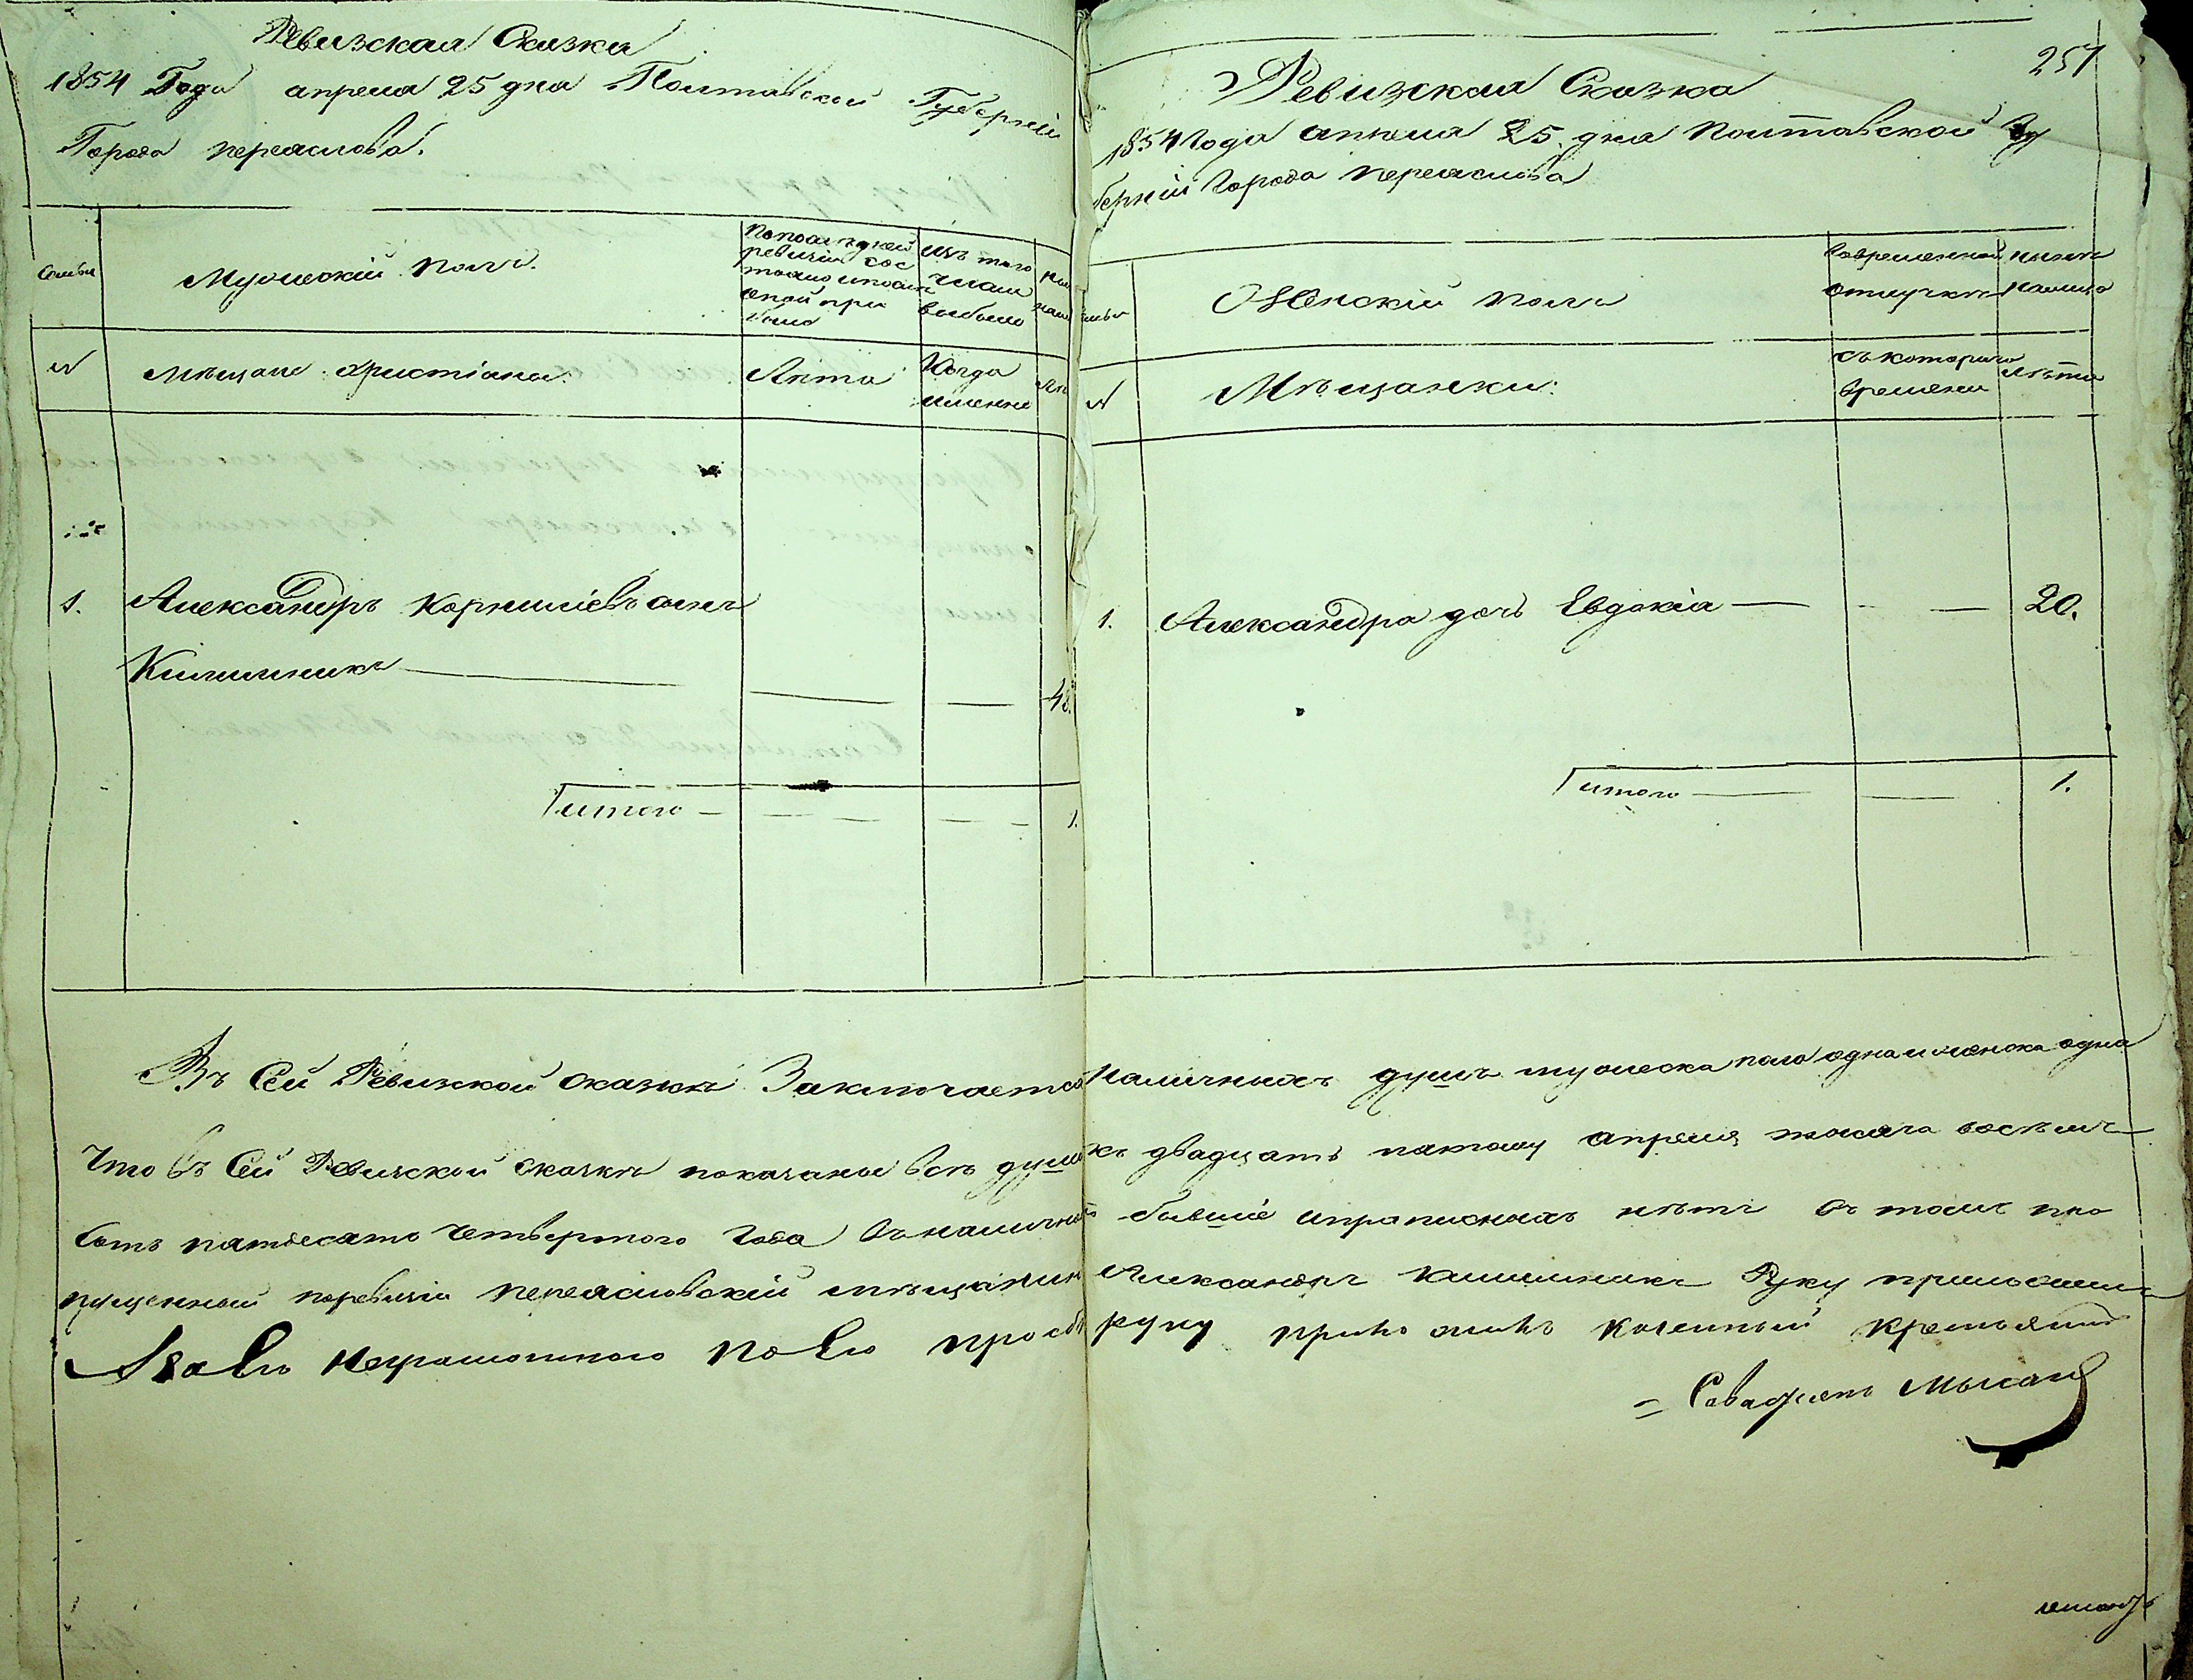 Ревизская Сказка
1854 Года апреля 25 дня Полтавской Губерніи
Города переяслова.
Семьи
Мужескій полъ.
По последней ревизіи состояло и после оной прибыло
Изъ того числа выбыло
№
мѣщане христіане:
Лета
Когда именно
1. Александръ Корниліевъ сынъ
Килимникъ 48.
Итого 1.
251
Ревизская Сказка
1854 Года апреля 25. дня Полтавской Гу
берніи Города переяслова
семьи
Женскій полъ
Во временной отлучке
ныне налицо
№
Мѣщанки:
съ котораго времени
лѣта
1. Александра дочь Евдокія 20.
Итого 1.
Въ Сей Ревизской сказкѣ Заключается наличныхъ душъ мужеска пола одна и женска одна
Что въ Сей Ревизской сказкѣ показаны всѣ души къ двадцать пятому апреля тысяча восемь
сотъ пятдесятъ четвертого Года въ наличности бывшіе и прописныхъ нѣтъ въ томъ про
пущенный поревизіи переяславскій мѣщанинъ Александръ Килимникъ Руку приложилъ
А за Его неграмотного по Его прозбѣ руку приложилъ казенный крестьянинъ